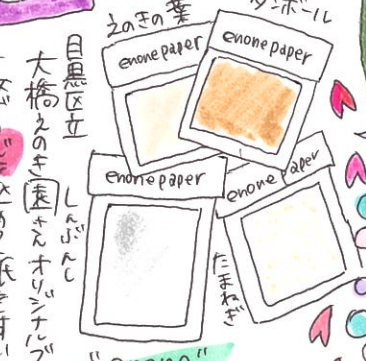 ダンボール
えのきの葉
enone paper
enone paper
enone paper
enone paper
しんぶんし
たまねぎ
目黒区立
大橋えのき園さんオリジナルブ